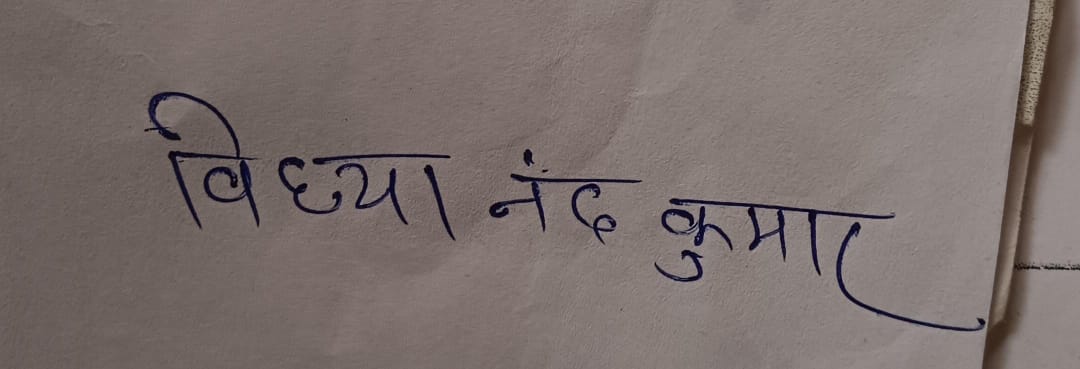 विध्या नंद कुमार